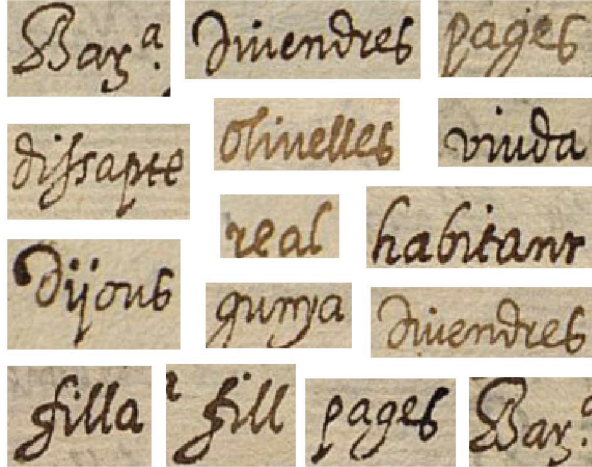 Barª. Diuendres pages
dissapte Oliuelles viuda
real habitant
Dijous gunya Diuendres
filla fill pages Barª.